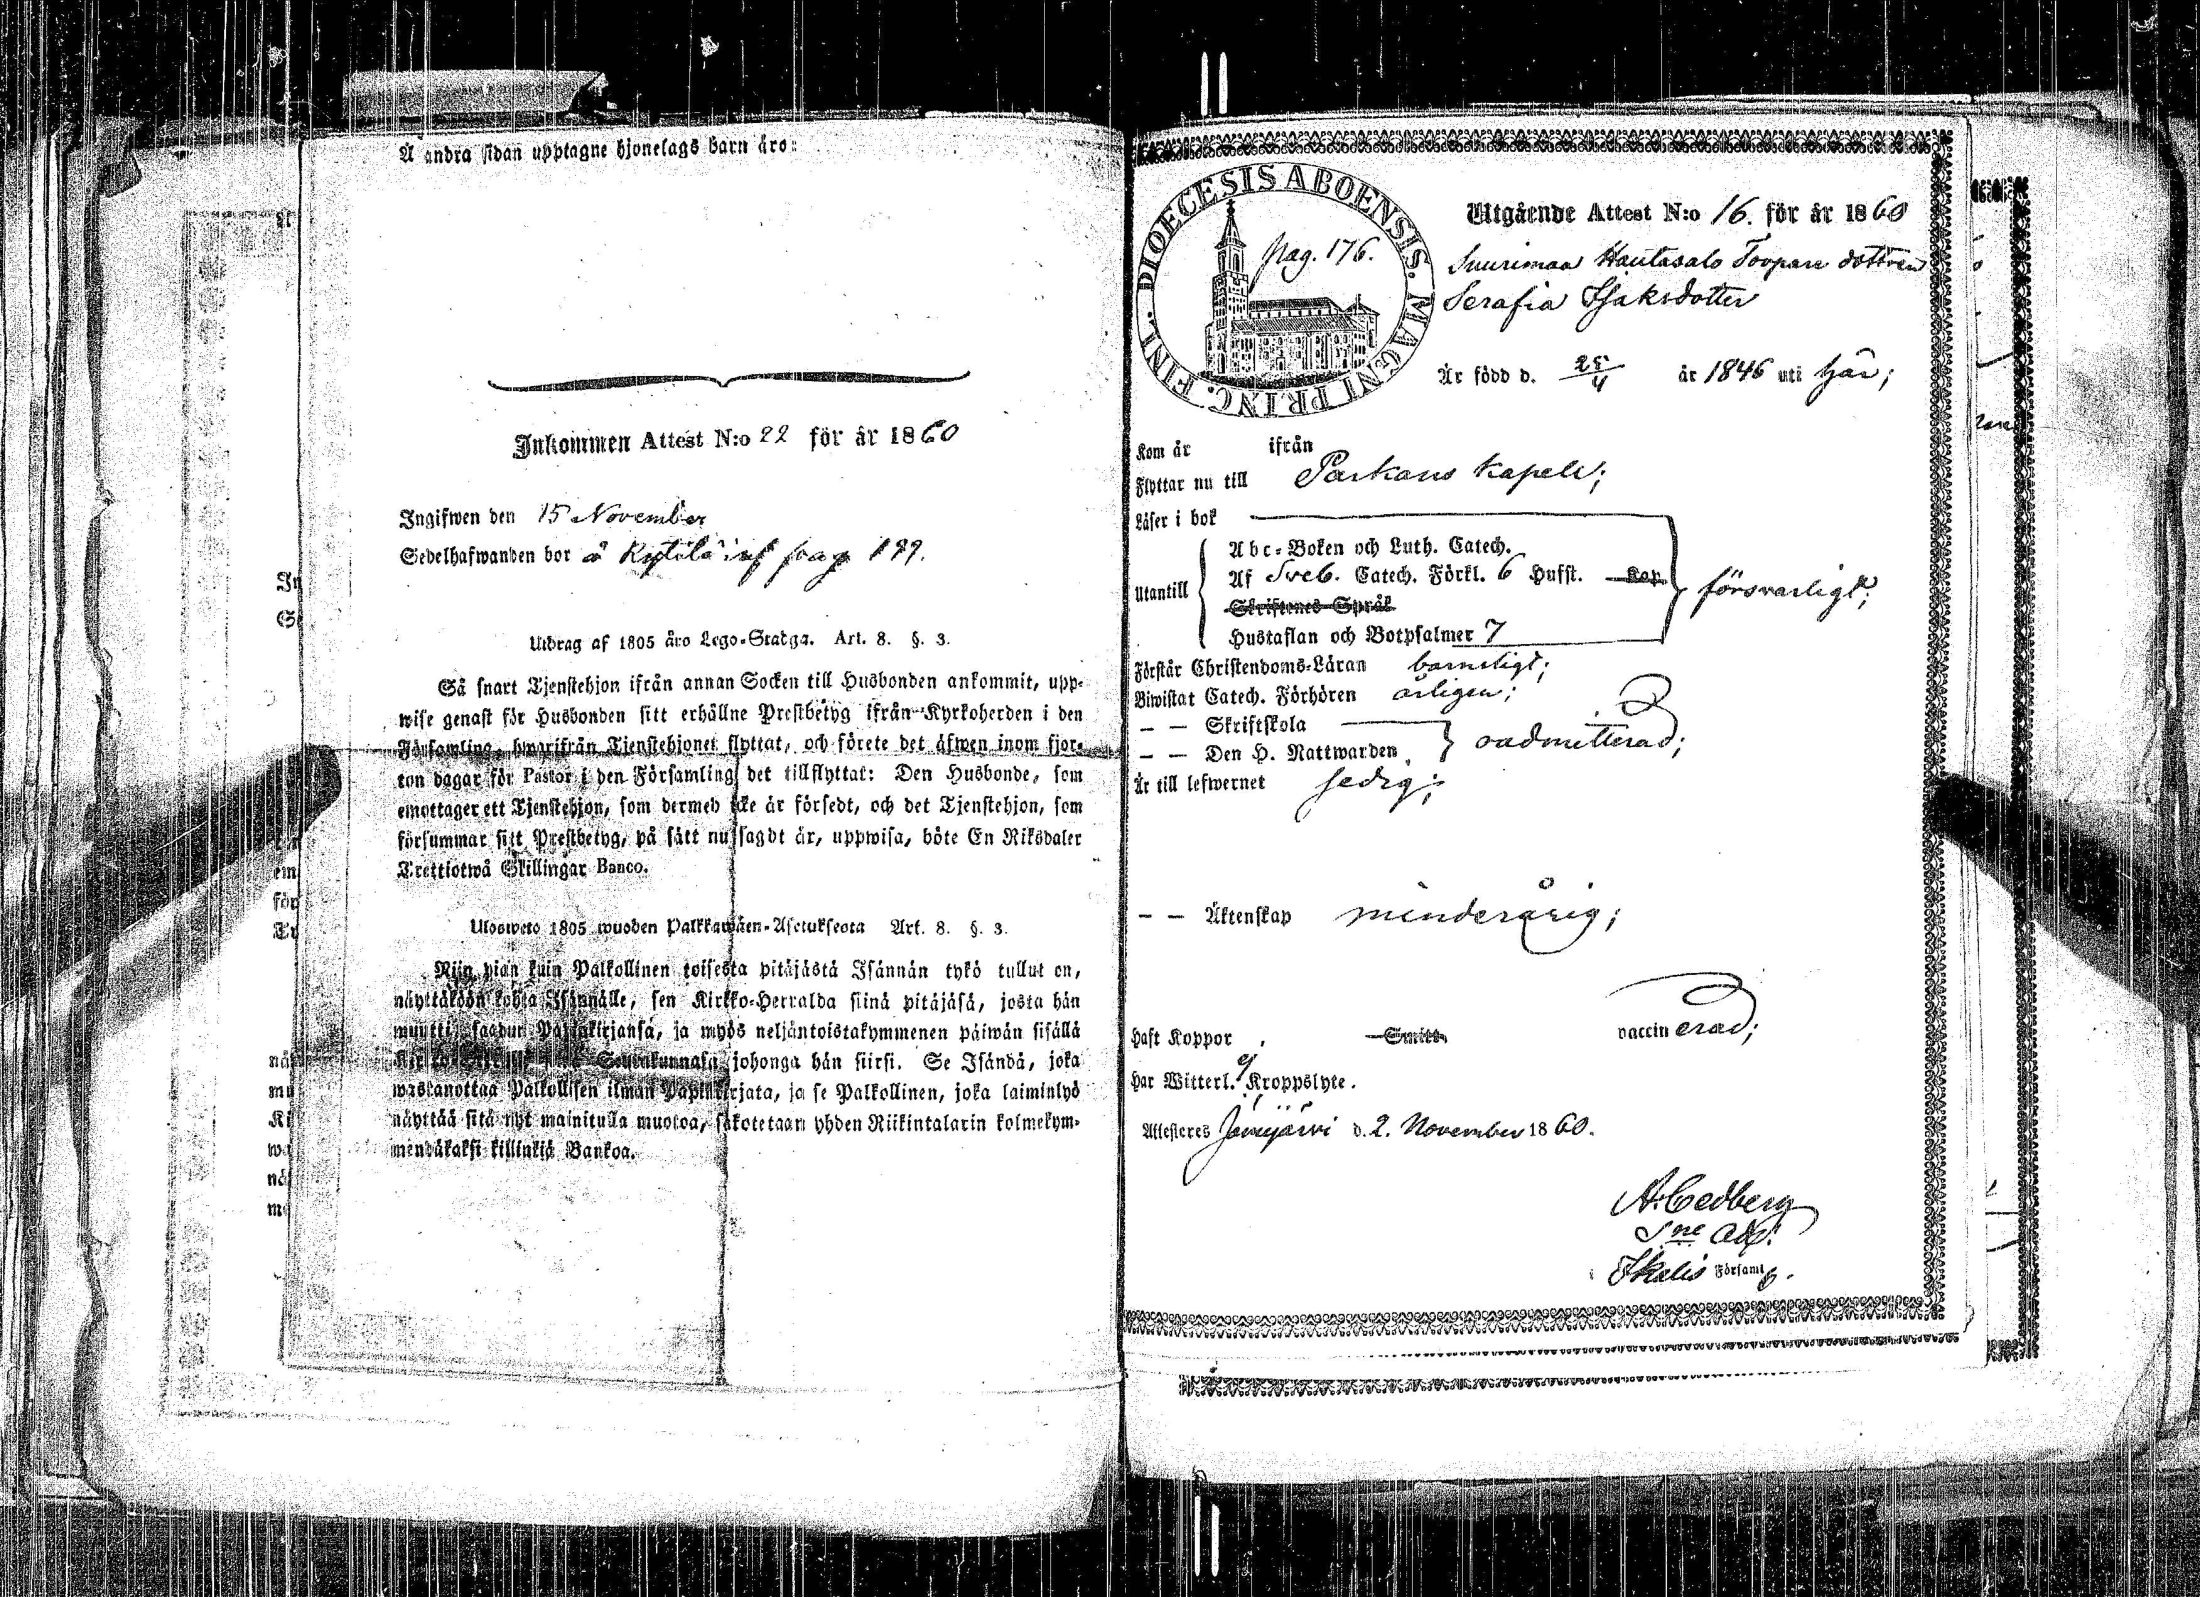 Å andra sidan upptagne hjonelags barn äro:
Inkommen Attest N:o 22 för år 1860
Ingifwen den 15 November
Sedelhafwanden bor å Kytölä inf pag 199.
Utdrag af 1805 åro Lego-Stadga. Art. 8. §. 3.
Så snart Tjenstehjon ifrån annan Socken till Husbonden ankommit, upp-
wise genast för Husbonden sitt erhållne Prestbetyg ifrån Kyrkoherden i den
Församling, hwarifrån Tjenstehjonet flyttat, och förete det äfwen inom fjor-
ton dagar för Pastor i den Församling det tillflyttat: Den Husbonde, som
emottager ett Tjenstehjon, som dermed icke är försedt, och det Tjenstehjon, som
försummar sitt Prestbetyg, på sätt nu sagdt är, uppwisa, böte En Riksdaler
Trettiotwå Skillingar Banco.
Ulosweto 1805 wuoden Palkkawäen-Asetuksesta Art. 8. §. 3.
Niin pian kuin Palkollinen toisesta pitäjästä Isännän tykö tullut on,
näyttäköön kohta Isännälle, sen Kirkko-Herralda siinä pitäjäsä, josta hän
muutti, saadun Papinkirjansa, ja myös neljäntoistakymmenen päiwän sisällä
Seurakunnasa johonga hän siirsi. Se Isändä, joka
wastanottaa Palkollisen ilman Papinkirjata, ja se Palkollinen, joka laiminlyö
näyttää sitä nyt mainitulla muotoa, sakotetaan yhden Riikintalarin kolmekym-
mendäkaksi killinkiä Bankoa.
DIOECESIS ABOENSIS. MAGNI PRINC. FINL.
Pag. 176.
Utgående Attest N:o 16. för år 1860
Suurimaa Hautasalo Torpare dottren
Serafia Isaksdotter
Är född d. 25/4 år 1846 uti här;
Kom år ifrån
Flyttar nu till Parkano Kapell;
Läser i bok
Utantill
Abc-Boken och Luth. Catech.
Af Sveb. Catech. Förkl. 6 Hufst. Kap.
Skriftenes Språk
Hustaflan och Botpsalmer 7
försvarligt;
Förstår Christendoms-Läran barnsligt;
Biwistat Catech. Förhören årligen;
— — Skriftskola
— — Den H. Nattwarden
oadmitterad;
Är till lefwernet sedig;
— — Äktenskap minderårig;
Haft Koppor Smitt. vaccinerad;
Har Witterl. ej Kroppslyte.
Attesteres Jämijärvi d. 2. November 1860.
A. Cedberg
Sne Adj.
i Ikalis Församlg.